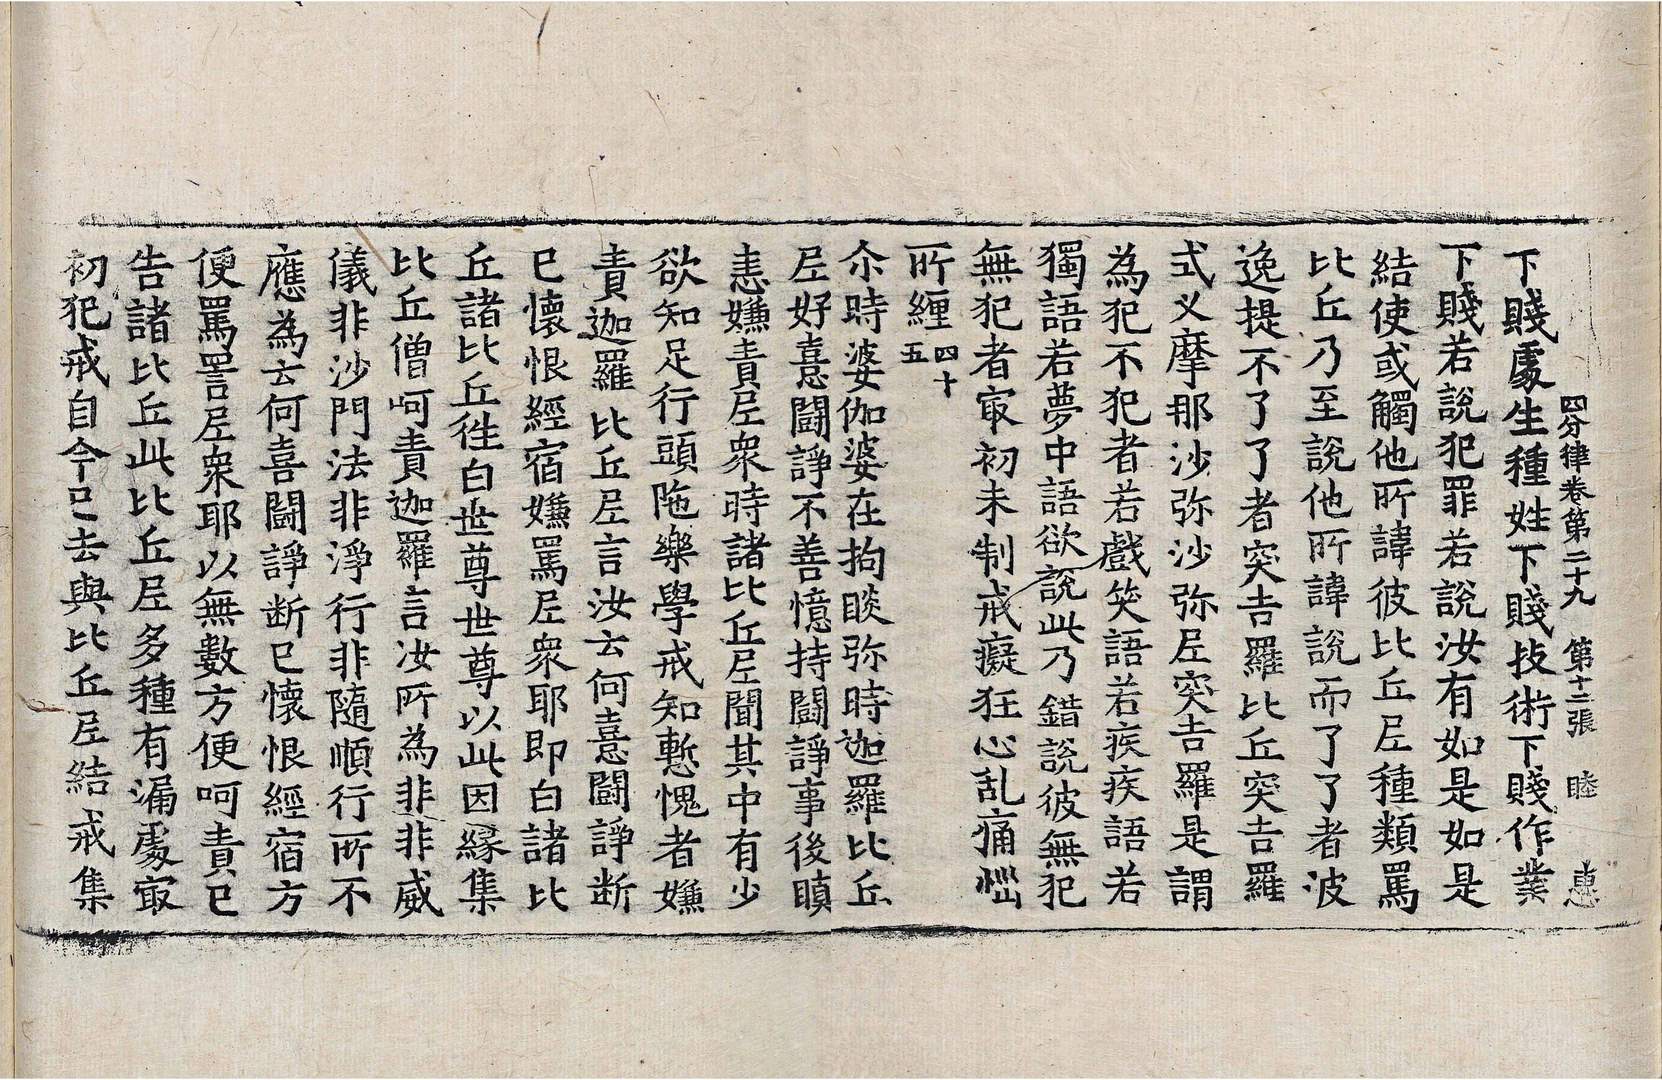 四分律卷第二十九　第十二張　睦　惠
下賤處生種姓下賤技術下賤作業
下賤若說犯罪若說汝有如是如是
結使或觸他所諱彼比丘尼種類罵
比丘乃至說他所諱說而了了者波
逸提不了了者突吉羅比丘突吉羅
式叉摩那沙弥沙弥尼突吉羅是謂
為犯不犯者若戲笑語若疾疾語若
獨語若夢中語欲說此乃錯說彼無犯
無犯者㝡初未制戒癡狂心乱痛惱
所纏四十五
尒時婆伽婆在拘睒弥時迦羅比丘
尼好憙鬪諍不善憶持鬪諍事後瞋
恚嫌責尼衆時諸比丘尼聞其中有少
欲知足行頭陁樂學戒知慙愧者嫌
責迦羅比丘尼言汝云何憙鬪諍断
已懷恨經宿嫌罵尼衆耶即白諸比
丘諸比丘徃白世尊世尊以此因緣集
比丘僧呵責迦羅言汝所為非非威
儀非沙門法非淨行非隨順行所不
應為云何喜鬪諍断已懷恨經宿方
便罵詈尼衆耶以無數方便呵責已
告諸比丘此比丘尼多種有漏處㝡
初犯戒自今已去與比丘尼結戒集